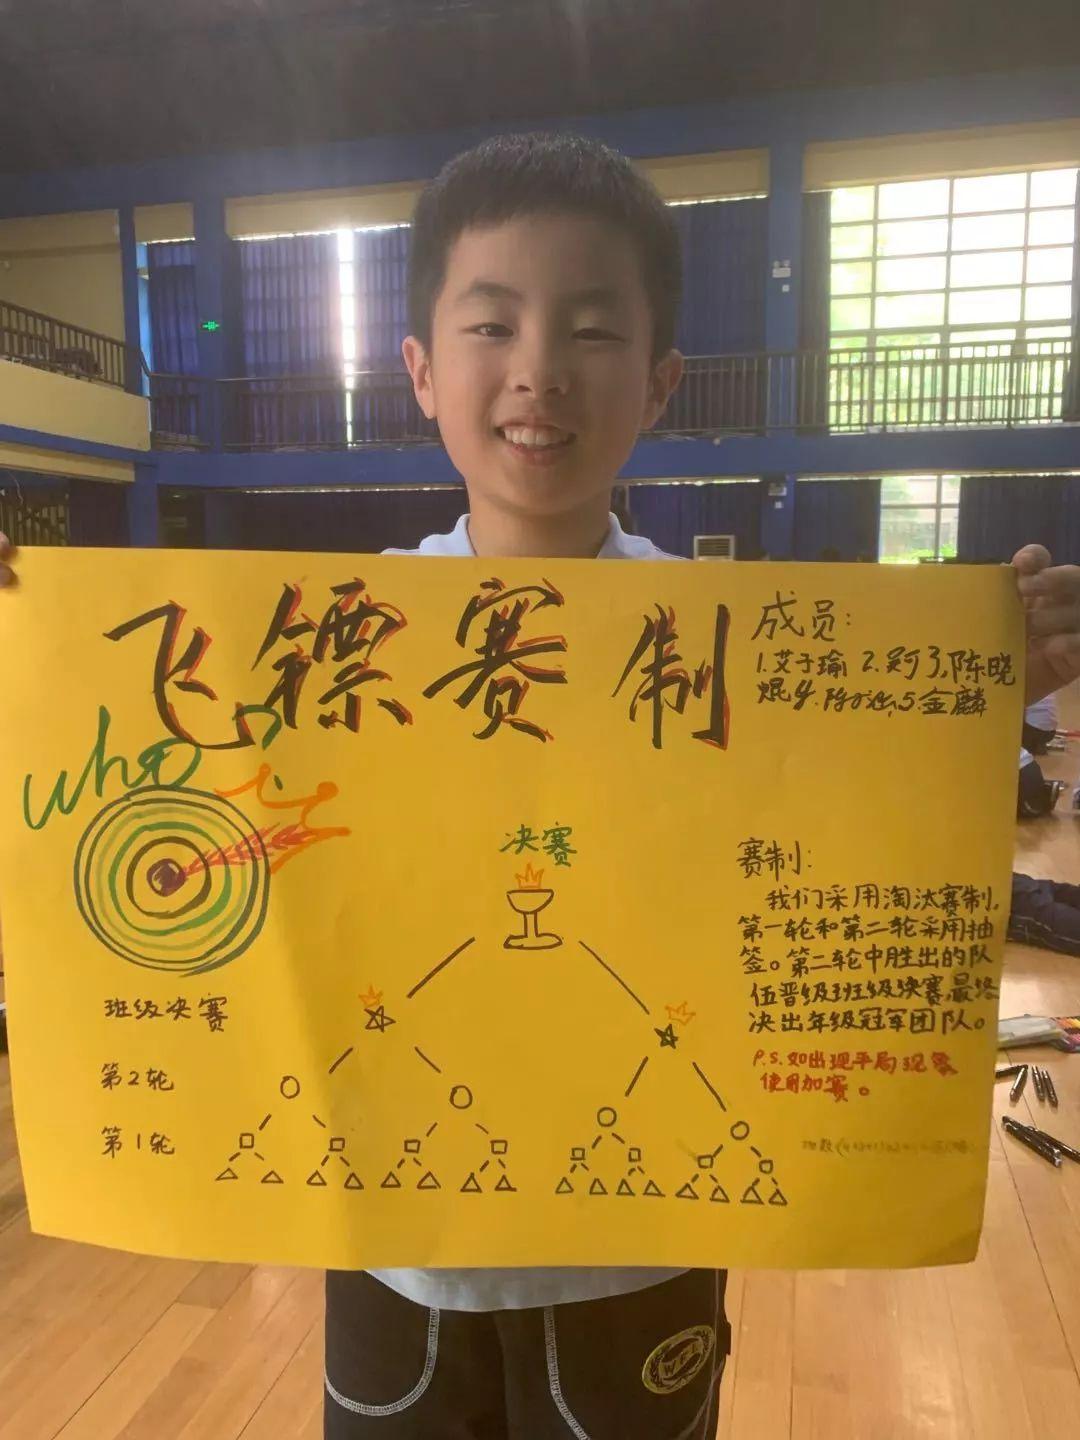 飞镖赛制
成员:
1.艾子瑜 2.吴可 3,陈晓
焜 4. 5.金麟
who
决赛
赛制:
我们采用淘汰赛制,
第一轮和第二轮采用抽
签。第二轮中胜出的队
伍晋级班级决赛,最终
决出年级冠军团队。
P.S.如出现平局现象
使用加赛。
班级决赛
第2轮
第1轮
WFL